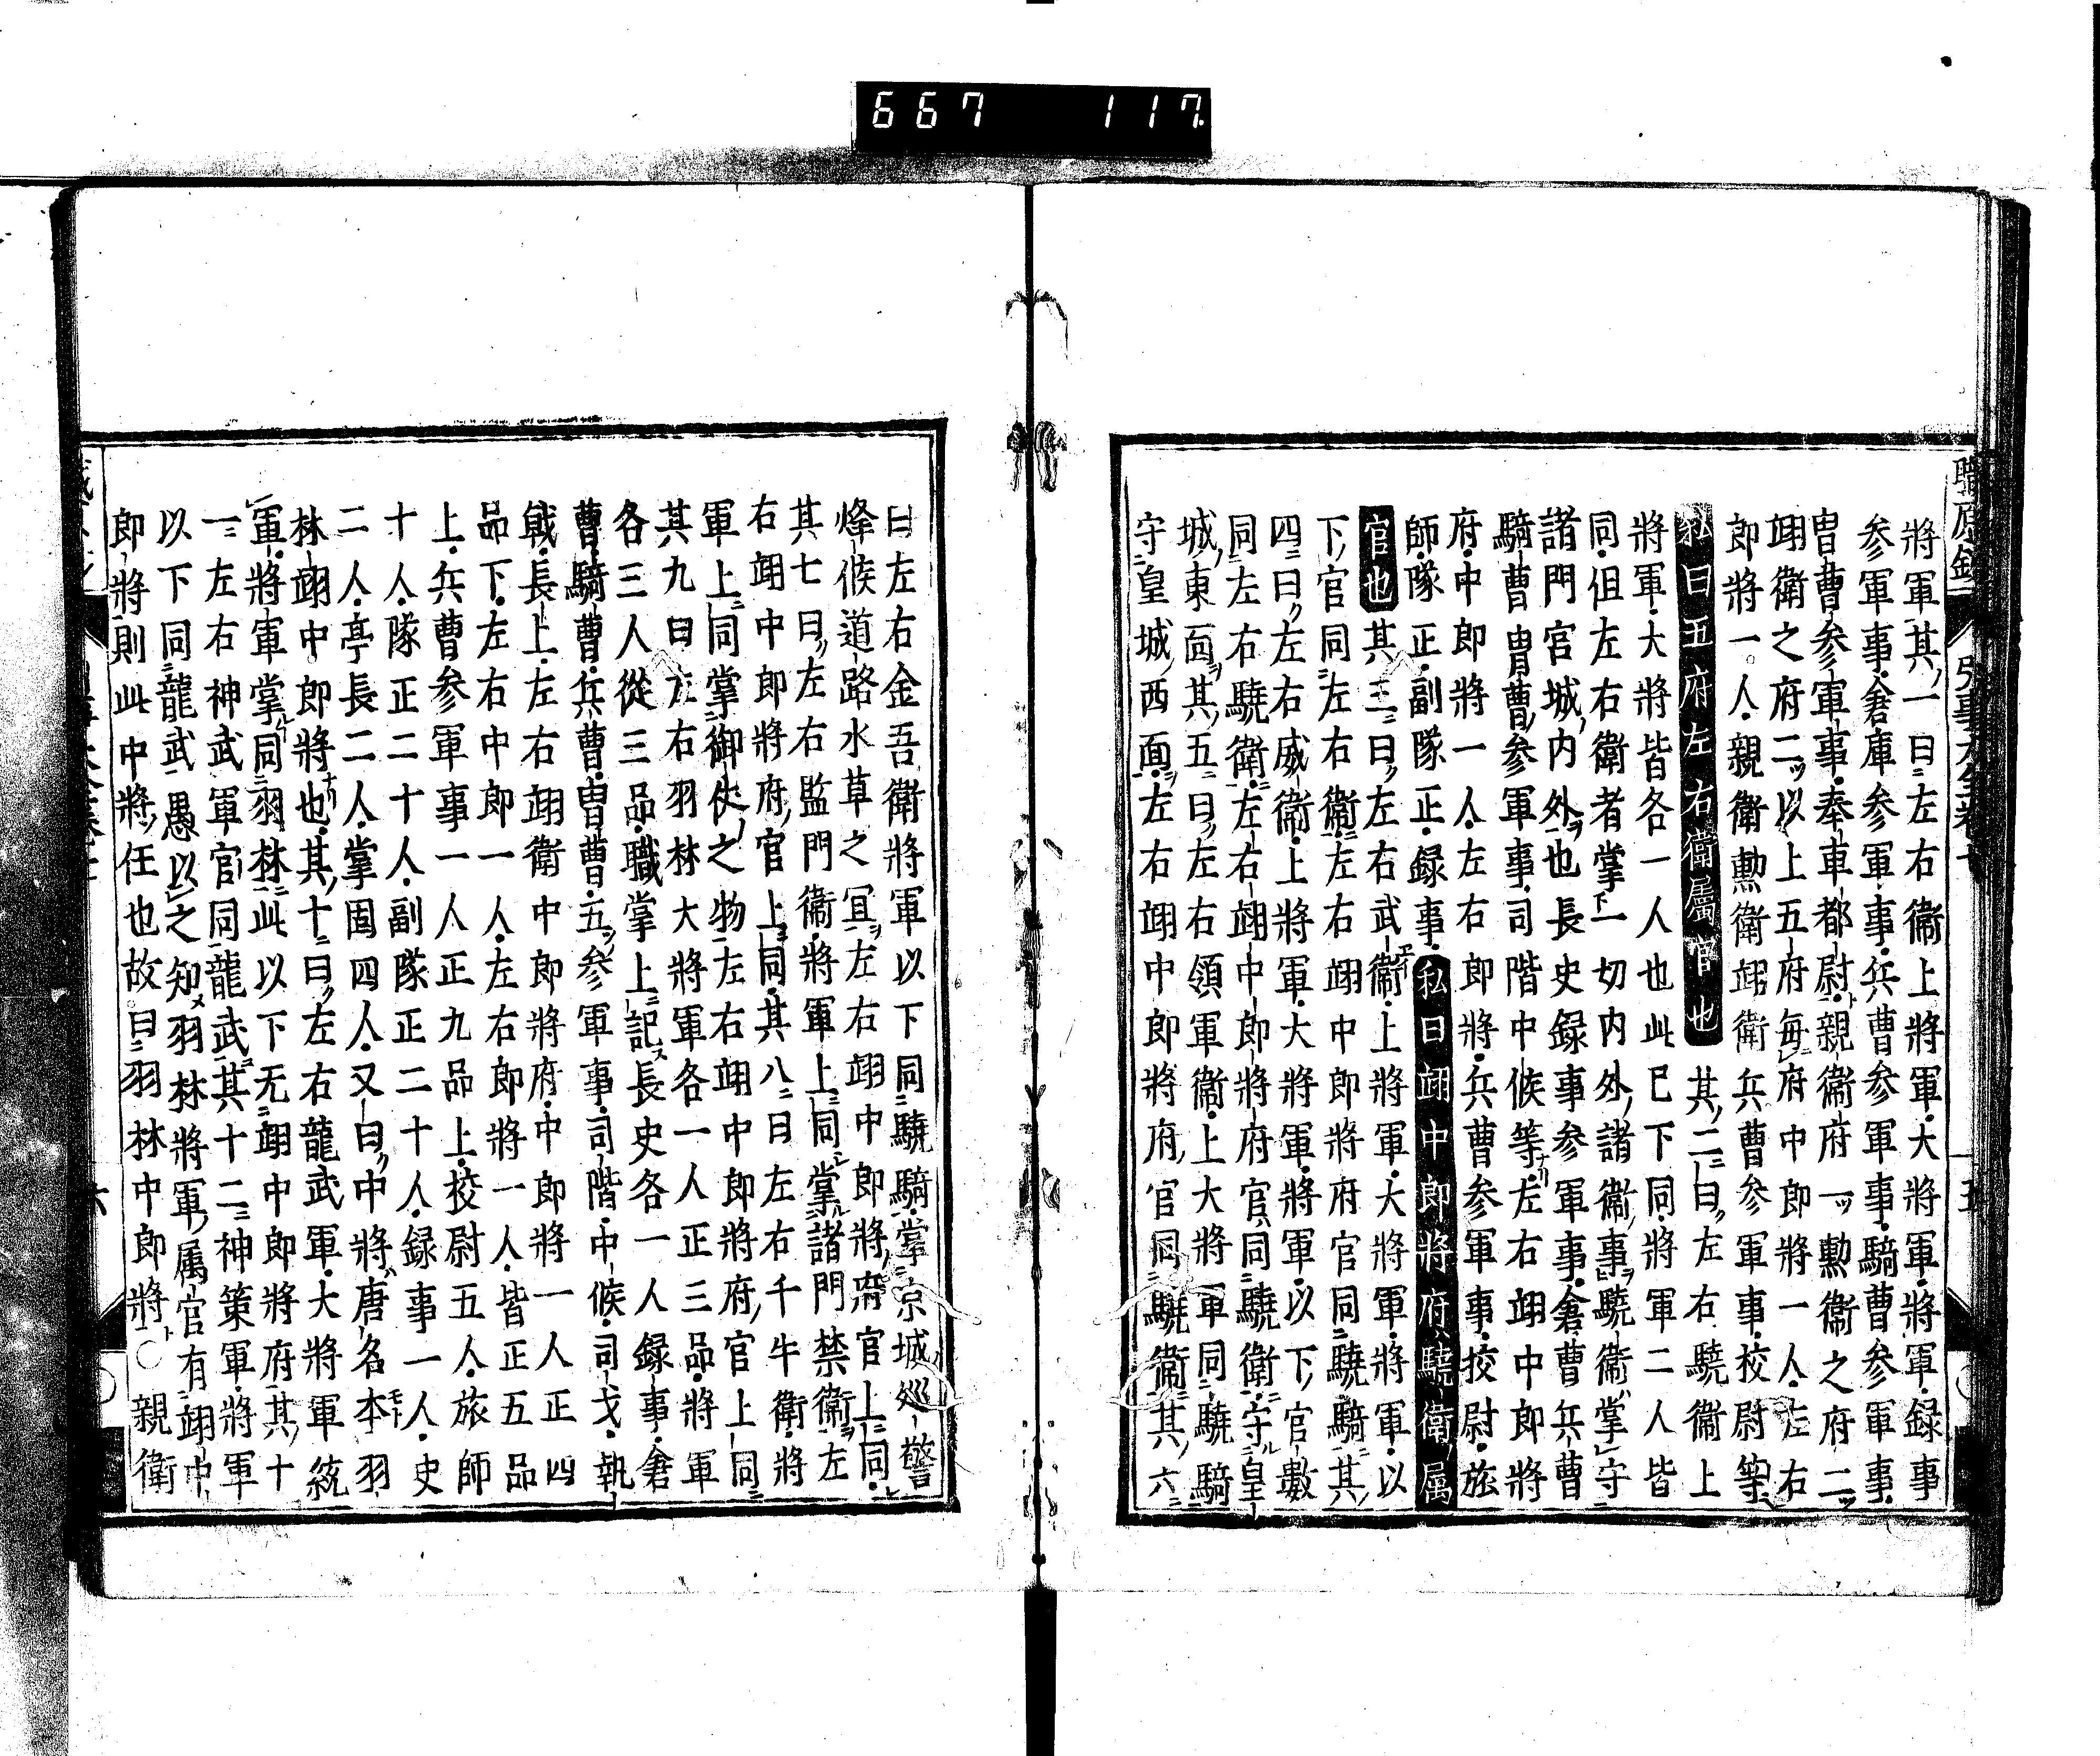 667 117
職原鈔
將軍其一曰左右衞上將軍大將軍將軍録事
参軍事倉庫参軍事兵曹参軍事騎曹参軍事
冑曹参軍事奉車都尉親衞府一勲衞之府二
翊衞之府二以上五府每府中郎將一人左右
郎將一人親衞勲衞翊衞兵曹参軍事校尉等
私曰五府左右衞屬官也其二曰左右驍衞上
將軍大將皆各一人也此已下同將軍二人皆
同但左右衞者掌一切内外諸衞事驍衞掌守
諸門宮城内外也長史録事参軍事倉曹兵曹
騎曹冑曹参軍事司階中候等左右翊中郎將
府中郎將一人左右郎將兵曹参軍事校尉旅
師隊正副隊正録事私曰翊中郎將府驍衞属
官也其三曰左右武衞上將軍大將軍將軍以
下官同左右衞左右翊中郎將府官同驍騎其
四曰左右威衞上將軍大將軍將軍以下官數
同左右驍衞左右翊中郎將府官同驍衞守皇
城東面其五曰左右領軍衞上大將軍同驍騎
守皇城西面左右翊中郎將府官同驍衞其六
曰左右金吾衞將軍以下同驍騎掌京城巡警
烽候道路水草之宜左右翊中郎將府官上同
其七曰左右監門衞將軍上同掌諸門禁衞左
右翊中郎將府官上同其八曰左右千牛衞將
軍上同掌御仗之物左右翊中郎將府官上同
其九曰左右羽林大將軍各一人正三品將軍
各三人從三品職掌上記長史各一人録事倉
曹騎曹兵曹冑曹五参軍事司階中候司戈執
戟長上左右翊衞中郎將府中郎將一人正四
品下左右中郎一人左右郎將一人皆正五品
上兵曹参軍事一人正九品上校尉五人旅師
十人隊正二十人副隊正二十人録事一人史
二人亭長二人掌固四人又曰中將唐名本羽
林翊中郎將也其十曰左右龍武軍大將軍統
軍將軍掌同羽林此以下无翊中郎將府其十
一左右神武軍官同龍武其十二神策軍將軍
以下同龍武愚以之知羽林將軍属官有翊中
郎將則此中將任也故曰羽林中郎將○親衞
六